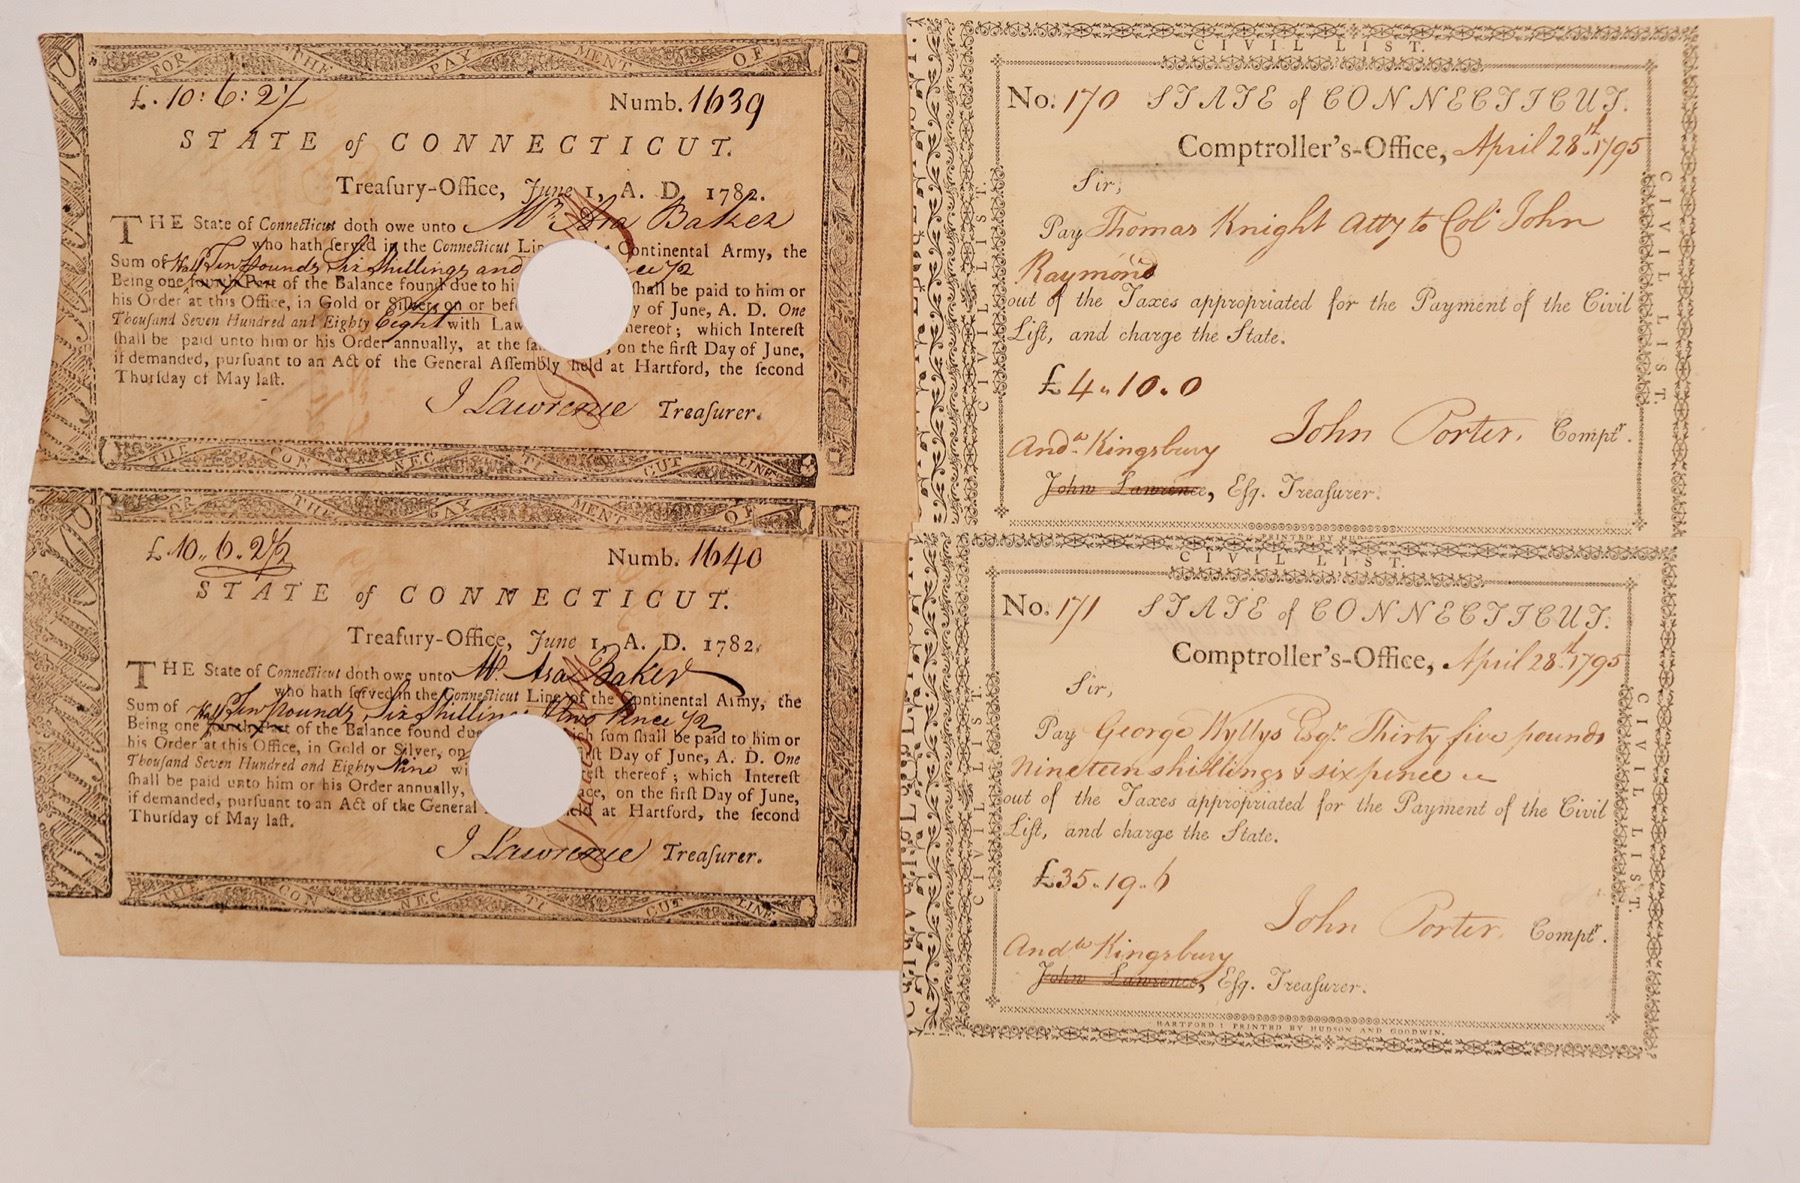 FOR THE PAYMENT OF
£. 10: 6: 2½ Numb. 1639
STATE of CONNECTICUT.
Treaſury-Office, June 1, A. D. 1782.
THE State of Connecticut doth owe unto Mr. Asa Baker
who hath ſerved in the Connecticut Line Continental Army, the
Sum of Half Ten Pounds Six Shillings and ½
Being one fourth Part of the Balance found due to ſhall be paid to him or
his Order at this Office, in Gold or Silver, on or Day of June, A. D. One
Thouſand Seven Hundred and Eighty Eight with thereof; which Intereſt
ſhall be paid unto him or his Order annually, at the on the firſt Day of June,
if demanded, purſuant to an Act of the General Aſſembly held at Hartford, the ſecond
Thurſday of May laſt.
J Lawrence Treaſurer.
THE CONNECTICUT LINE
FOR THE PAYMENT OF
£ 10,, 6,, 2½ Numb. 1640
STATE of CONNECTICUT.
Treaſury-Office, June 1, A. D. 1782.
THE State of Connecticut doth owe unto Mr. Asa Baker
who hath ſerved in the Connecticut Line of the Continental Army, the
Sum of Half Ten Pounds, Six Shillings & two Pence ½
Being one fourth Part of the Balance found due which ſum ſhall be paid to him or
his Order at this Office, in Gold or Silver, on firſt Day of June, A. D. One
Thouſand Seven Hundred and Eighty Nine thereof; which Intereſt
ſhall be paid unto him or his Order annually, on the firſt Day of June,
if demanded, purſuant to an Act of the General held at Hartford, the ſecond
Thurſday of May laſt.
J Lawrence Treaſurer.
THE CONNECTICUT LINE
CIVIL LIST.
CIVIL LIST.
CIVIL LIST.
No. 170 STATE of CONNECTICUT.
Comptroller's-Office, April 28th. 1795
Sir,
Pay Thomas Knight Atty to Col. John
Raymond
out of the Taxes appropriated for the Payment of the Civil
Liſt, and charge the State.
£4,, 10,, 0
John Porter, Comptr.
Andw. Kingsbury
John Lawrence, Eſq. Treaſurer.
PRINTED BY HUD
CIVIL LIST.
CIVIL LIST.
CIVIL LIST.
No. 171 STATE of CONNECTICUT.
Comptroller's-Office, April 28th. 1795
Sir,
Pay George Wyllys Esqr. Thirty five pounds
Nineteen shillings & sixpence
out of the Taxes appropriated for the Payment of the Civil
Liſt, and charge the State.
£35,, 19,, 6
John Porter, Comptr.
Andw Kingsbury
John Lawrence, Eſq. Treaſurer.
HARTFORD: PRINTED BY HUDSON AND GOODWIN.